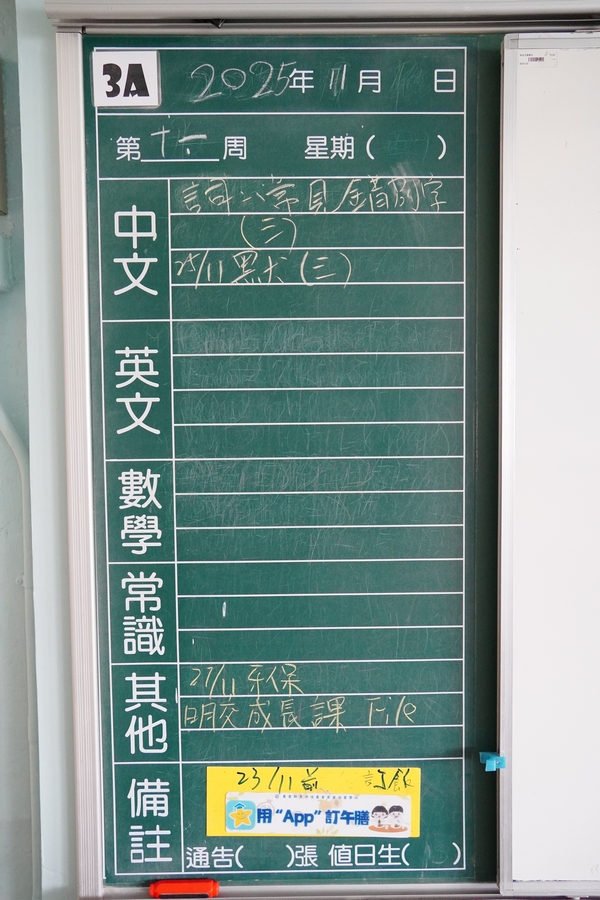 3A 2025年 11月 日
第十六周 星期( )
中文
詞六常見錯別字
(三)
25/11 默犬(三)
英文
數學
常識
其他
27/11 牙保
明交成長課 File
備註
23/11前 訂飯
用“App”訂午膳
通告( )張 值日生( )